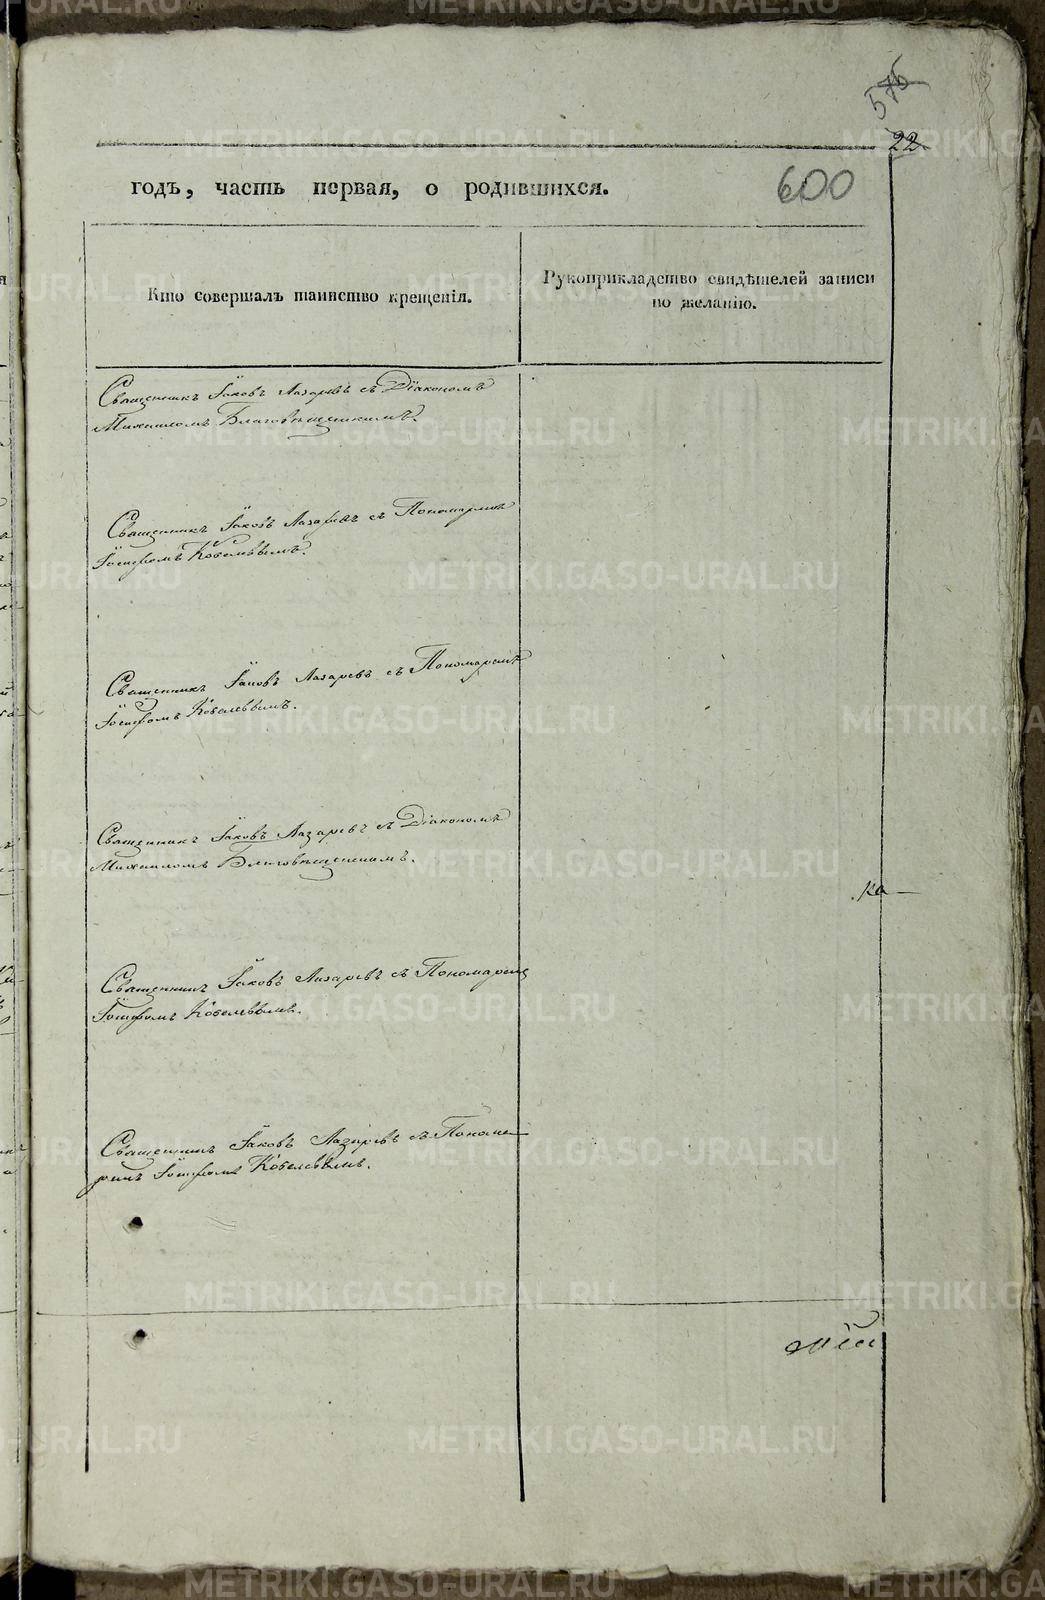 575
22
годъ, часть первая, о родившихся.
600
Кто совершалъ таинство крещенія.
Рукоприкладство свидѣтелей записи
по желанію.
Священникъ Іаковъ Лазаревъ съ Діакономъ
Михаиломъ Благовѣщенскимъ.
Священникъ Іаковъ Лазаревъ съ Пономаремъ
Іосифомъ Кобелевымъ.
Священникъ Іаковъ Лазаревъ съ Пономаремъ
Іосифомъ Кобелевымъ.
Священникъ Іаковъ Лазаревъ съ Діакономъ
Михаиломъ Благовѣщенскимъ.
ка
Священникъ Іаковъ Лазаревъ съ Пономаремъ
Іосифомъ Кобелевымъ.
Священникъ Іаковъ Лазаревъ съ Понома-
ремъ Іосифомъ Кобелевымъ.